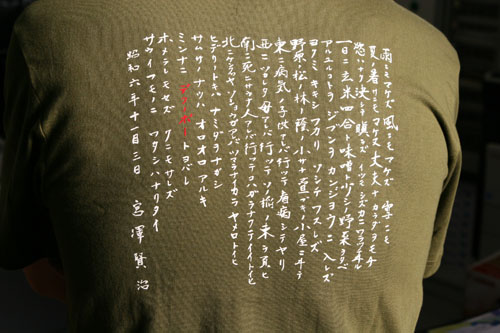 雨ニモマケズ 風ニモマケズ 雪ニモ
夏ノ暑サニモマケヌ 丈夫ナカラダヲモチ
慾ハナク 決シテ瞋ラズ イツモシヅカニワラッテヰル
一日ニ玄米四合ト 味噌ト少シノ野菜ヲタベ
アラユルコトヲ ジブンヲカンジョウニ入レズ
ヨクミキキシワカリ ソシテワスレズ
野原ノ松ノ林ノ蔭ノ 小サナ萱ブキノ小屋ニヰテ
東ニ病気ノ子供アレバ 行ッテ看病シテヤリ
西ニツカレタ母アレバ 行ッテソノ稲ノ束ヲ負ヒ
南ニ死ニサウナ人アレバ 行ッテコハガラナクテモイイトイヒ
北ニケンクヮヤソショウガアレバ ツマラナイカラヤメロトイヒ
ヒデリノトキハ ナミダヲナガシ
サムサノナツハ オロオロアルキ
ミンナニ デクノボートヨバレ
ホメラレモセズ クニモサレズ
サウイフモノニ ワタシハナリタイ
昭和六年十一月三日 宮澤賢治